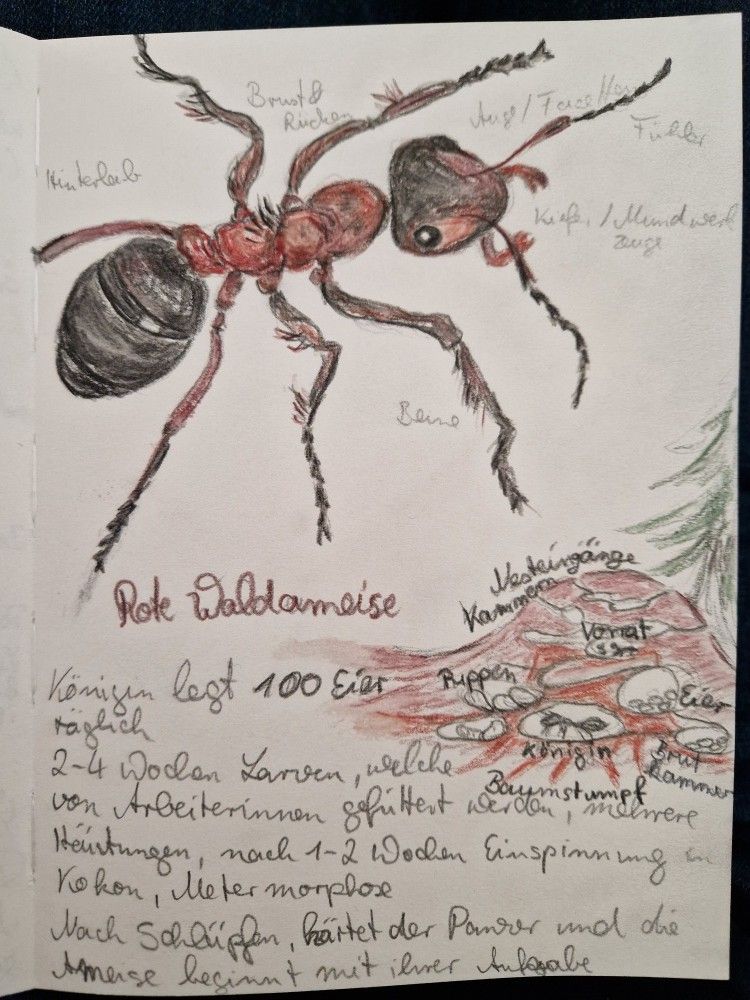 Brust &
Rücken
Auge / Facetten
Fühler
Hinterleib
Kiefer / Mundwerk
zeuge
Beine
Rote Waldameise
Nesteingänge
Kammern
Vorrat
Puppen
Eier
Königin
Brut
kammer
Baumstumpf
Königin legt 100 Eier
täglich
2-4 Wochen Larven, welche
von Arbeiterinnen gefüttert werden, mehrere
Häutungen, nach 1-2 Wochen Einspinnung in
Kokon, Metermorphose
Nach Schlüpfen, härtet der Panzer und die
Ameise beginnt mit ihrer Aufgabe